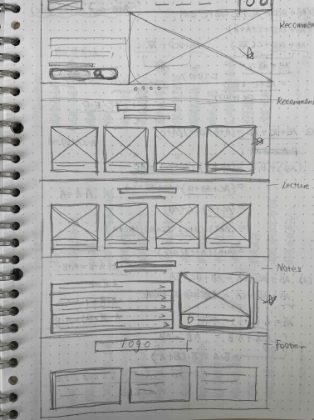 Recommen
Recommen
Lecture
Notes
Footer
Logo